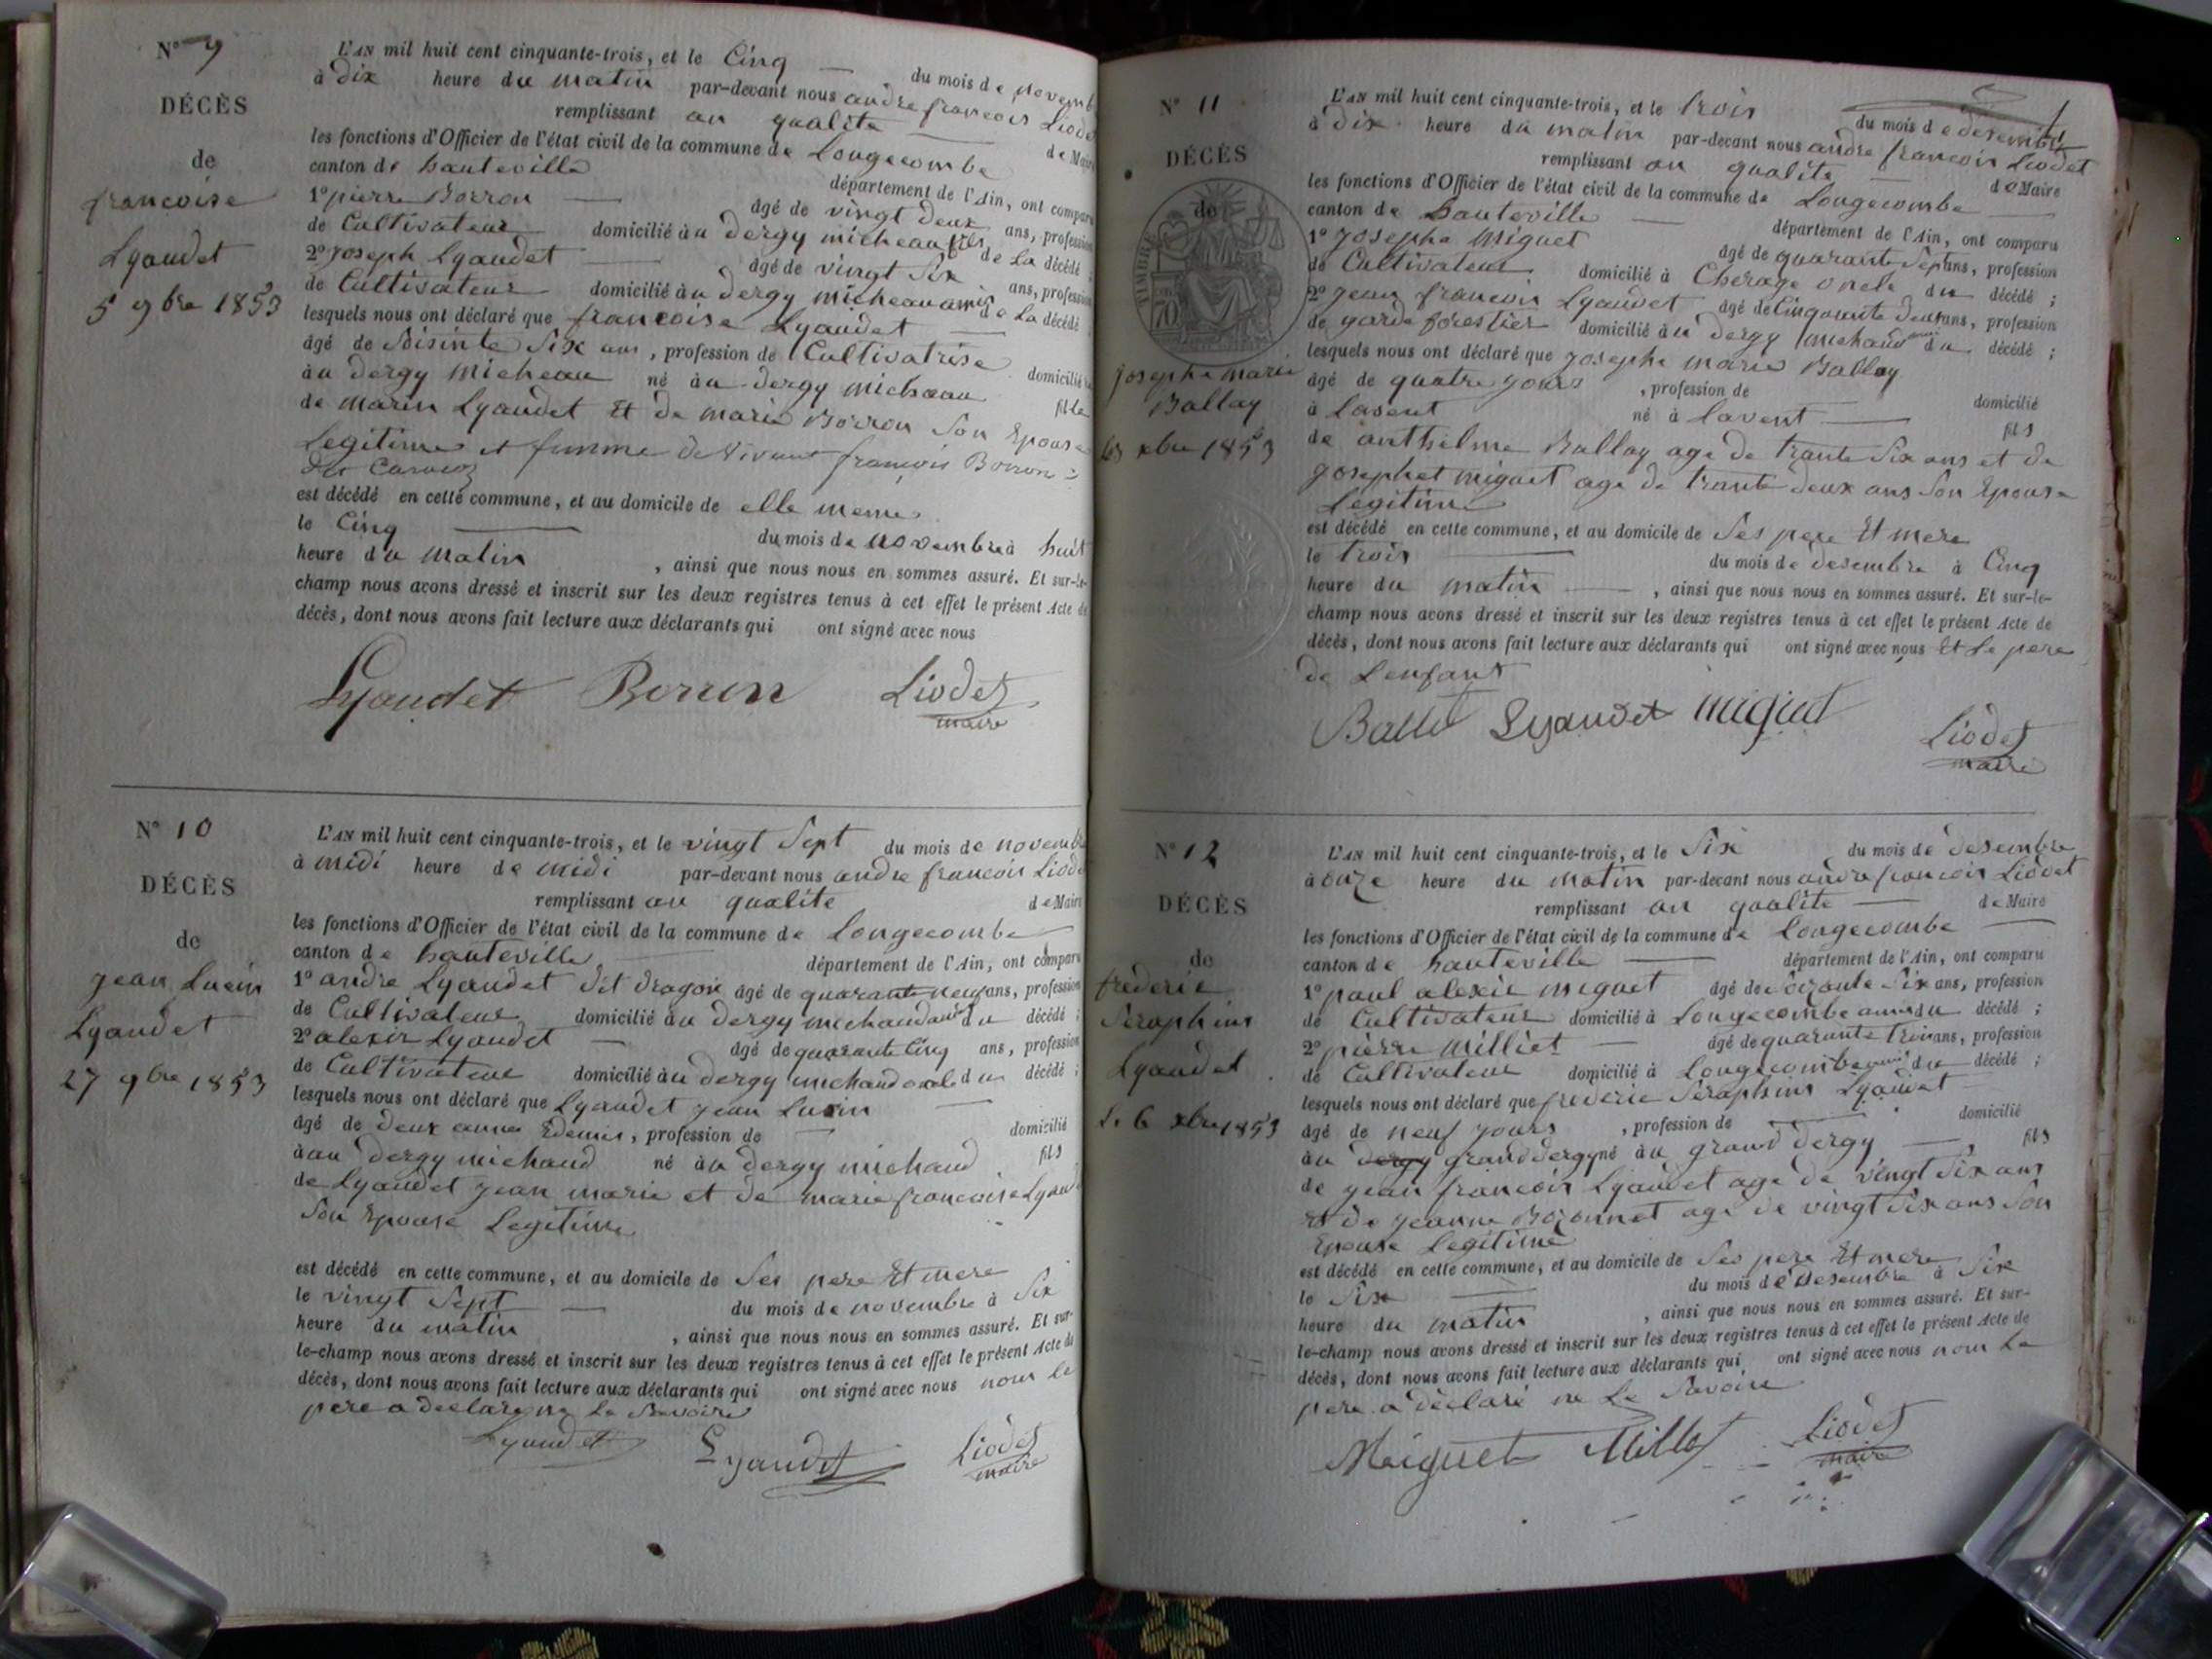 N° 9
DÉCÈS
de
francoise
Lyaudet
5 9bre 1853
L'AN mil huit cent cinquante-trois, et le Cinq du mois de novemb
à Dix heure du matin par-devant nous andre francois Liode
remplissant an qualite de Maire
les fonctions d'Officier de l'état civil de la commune de Longecombe
canton de hauteville département de l'Ain, ont comparu
1° pierre Borron âgé de vingt deux ans, profession
de Cultivateur domicilié àu dergy micheau fils de La décédé ;
2° joseph Lyaudet âgé de vingt Six ans, profession
de Cultivateur domicilié àu dergy micheau amis de La décédé
lesquels nous ont déclaré que francoise Lyaudet
âgé de Soisinte Six ans, profession de Cultivatrise domicilié
àu dergy micheau né àu dergy micheau fille
de marin Lyaudet Et de marie Borron Son Epouse
Legitime et femme de Vivant françois Borron
dit
est décédé en cette commune, et au domicile de elle meme
le Cinq du mois de novembre à huit
heure du matin, ainsi que nous nous en sommes assuré. Et sur-le-
champ nous avons dressé et inscrit sur les deux registres tenus à cet effet le présent Acte de
décès, dont nous avons fait lecture aux déclarants qui ont signé avec nous
Lyaudet Borron Liodet
maire
N° 10
DÉCÈS
de
jean Lucin
Lyaudet
27 9bre 1853
L'AN mil huit cent cinquante-trois, et le vingt Sept du mois de novemb
à midi heure de midi par-devant nous andre francois Liode
remplissant an qualite de Maire
les fonctions d'Officier de l'état civil de la commune de Longecombe
canton de hauteville département de l'Ain, ont comparu
1° andre Lyaudet dit dragon âgé de quarante neuf ans, profession
de Cultivateur domicilié àu dergy michaud amis du décédé ;
2° alexis Lyaudet âgé de quarante Cinq ans, profession
de Cultivateur domicilié àu dergy michaud oncle du décédé ;
lesquels nous ont déclaré que Lyaudet jean Lucin
âgé de Deux anné Edemis, profession de domicilié
à au dergy michaud né àu dergy michaud fils
de Lyaudet jean marie et de marie francoise Lyaud
Son Epouse Legitime
est décédé en cette commune, et au domicile de Ses pere Et mere
le vingt Sept du mois de novembre à Six
heure du matin, ainsi que nous nous en sommes assuré. Et sur-
le-champ nous avons dressé et inscrit sur les deux registres tenus à cet effet le présent Acte de
décès, dont nous avons fait lecture aux déclarants qui ont signé avec nous nom le
pere a déclaré ne Le Savoire
Lyaudet Lyaudet Liodet
maire
N° 11
DÉCÈS
de
TIMBRE
70
josephe marie
Ballay
xbre 1853
L'AN mil huit cent cinquante-trois, et le trois du mois de desembre
à Dix heure du matin par-devant nous andre francois Liodet
remplissant an qualite de Maire
les fonctions d'Officier de l'état civil de la commune de Longecombe
canton de hauteville département de l'Ain, ont comparu
1° josephe Miguet âgé de quarante Sept ans, profession
de Cultivateur domicilié à Cherage oncle du décédé ;
2° jean francois Lyaudet âgé de Cinquante Deux ans, profession
de garde forestier domicilié àu dergy michaud amis du décédé ;
lesquels nous ont déclaré que josephe marie Ballay
âgé de quatre jours, profession de domicilié
à Lavent né à Lavent fils
de anthelme Ballay age de trante Six ans et de
josephet miguet age de trante deux ans Son Epouse
Legitime
est décédé en cette commune, et au domicile de Ses pere Et mere
le trois du mois de desembre à Cinq
heure du matin, ainsi que nous nous en sommes assuré. Et sur-le-
champ nous avons dressé et inscrit sur les deux registres tenus à cet effet le présent Acte de
décès, dont nous avons fait lecture aux déclarants qui ont signé avec nous Et Le pere
de Lenfant
Ballet Lyaudet Miguet Liodet
maire
N° 12
DÉCÈS
de
frederic
Seraphins
Lyaudet
Le 6 xbre 1853
L'AN mil huit cent cinquante-trois, et le Six du mois de desembre
à onze heure du matin par-devant nous andre francois Liodet
remplissant an qualite de Maire
les fonctions d'Officier de l'état civil de la commune de Longecombe
canton de hauteville département de l'Ain, ont comparu
1° paul alexie miguet âgé de Soizante Six ans, profession
de Cultivateur domicilié à Longecombe amis du décédé ;
2° pierre Milliet âgé de quarante trois ans, profession
de Cultivateur domicilié à Longecombe amis du décédé ;
lesquels nous ont déclaré que frederic Seraphins Lyaudet
âgé de neuf jours, profession de domicilié
àu dergy grand dergy né àu grand dergy fils
de jean francois Lyaudet age de vingt Six ans
et de jeanne Bozonnet age de vingt Six ans Son
Epouse Legitime
est décédé en cette commune, et au domicile de Ses pere Et mere
le Six du mois de desembre à Six
heure du matin, ainsi que nous nous en sommes assuré. Et sur-
le-champ nous avons dressé et inscrit sur les deux registres tenus à cet effet le présent Acte de
décès, dont nous avons fait lecture aux déclarants qui ont signé avec nous nom Le
pere a déclaré ne Le Savoire
Miguet Milliet Liodet
maire